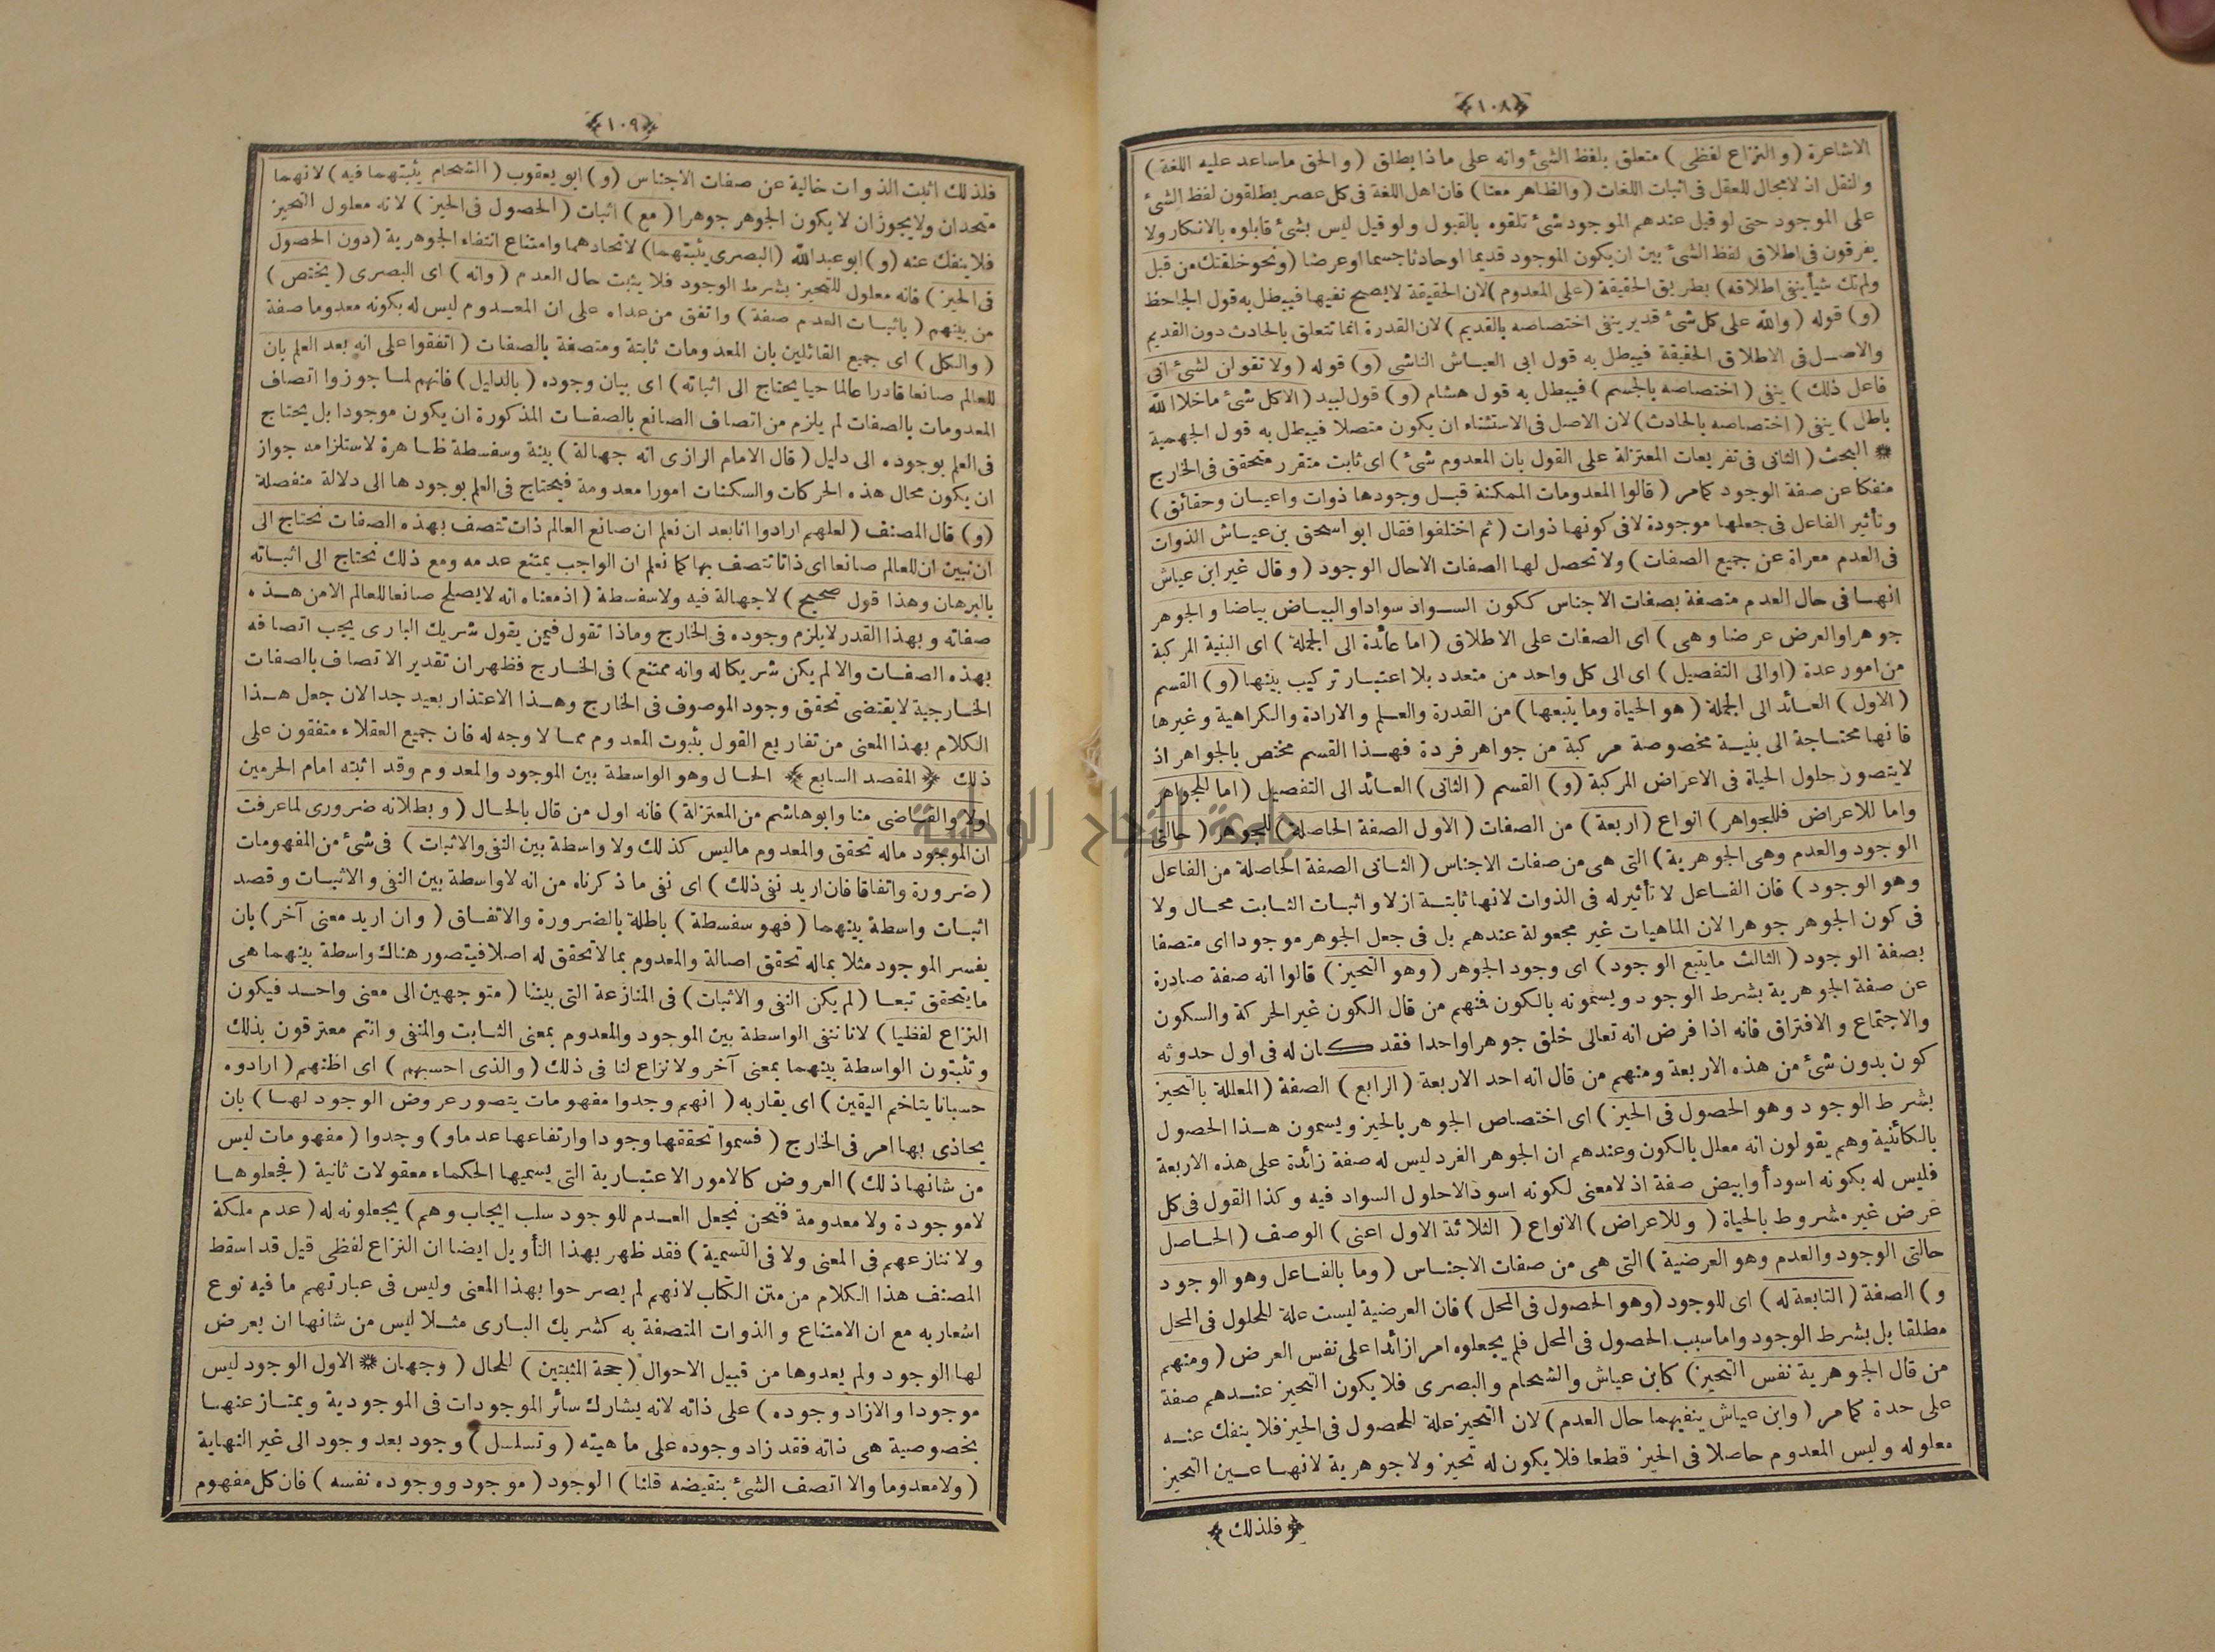 ﴿١٠٨﴾
الاشاعرة (والنزاع لفظى) متعلق بلفظ الشئ وانه على ماذا يطلق (والحق ماساعد عليه اللغة)
والنقل اذ لامجال للعقل فى اثبات اللغات (والظاهر معنا) فان اهل اللغة فى كل عصر يطلقون لفظ الشئ
على الموجود حتى لو قيل عندهم الموجود شئ تلقوه بالقبول ولو قيل ليس بشئ قابلوه بالانكار ولا
يفرقون فى اطلاق لفظ الشئ بين ان يكون الموجود قديما او حادثا جسما او عرضا (ونحو خلقتك من قبل
ولم تك شيأ ينفى اطلاقه) بطريق الحقيقة (على المعدوم) لان الحقيقة لايصح نفيها فيبطل به قول الجاحظ
(و) قوله (والله على كل شئ قدير ينفى اختصاصه بالقديم) لان القدرة انما تتعلق بالحادث دون القديم
والاصل فى الاطلاق الحقيقة فيبطل به قول ابى العباس الناشى (و) قوله (ولا تقولن لشئ انى
فاعل ذلك) ينفى (اختصاصه بالجسم) فيبطل به قول هشام (و) قول لبيد (الا كل شئ ماخلا الله
باطل) ينفى (اختصاصه بالحادث) لان الاصل فى الاستثناء ان يكون متصلا فيبطل به قول الجهمية
* البحث (الثانى فى تفريعات المعتزلة على القول بان المعدوم شئ) اى ثابت متقرر متحقق فى الخارج
منفكا عن صفة الوجود كمامر (قالوا المعدومات الممكنة قبل وجودها ذوات واعيان وحقائق)
وتأثير الفاعل فى جعلها موجودة لافى كونها ذوات (ثم اختلفوا فقال ابو اسحق بن عياش الذوات
فى العدم معراة عن جميع الصفات) ولا تحصل لها الصفات الاحال الوجود (وقال غير ابن عياش
انها فى حال العدم متصفة بصفات الاجناس ككون السواد سوادا والبياض بياضا والجوهر
جوهرا والعرض عرضا وهى) اى الصفات على الاطلاق (اما عائدة الى الجملة) اى البنية المركبة
من امور عدة (اوالى التفصيل) اى الى كل واحد من متعدد بلا اعتبار تركيب بينها (و) القسم
(الاول) العائد الى الجملة (هو الحياة وما يتبعها) من القدرة والعلم والارادة والكراهية وغيرها
فانها محتاجة الى بنية مخصوصة مركبة من جواهر فردة فهذا القسم مختص بالجواهر اذ
لايتصور حلول الحياة فى الاعراض المركبة (و) القسم (الثانى) العائد الى التفصيل (اما للجواهر
واما للاعراض فللجواهر) انواع (اربعة) من الصفات (الاول الصفة الحاصلة) للجوهر (حالتى
الوجود والعدم وهى الجوهرية) التى هى من صفات الاجناس (الثانى الصفة الحاصلة من الفاعل
وهو الوجود) فان الفاعل لا تأثير له فى الذوات لانها ثابتة ازلا واثبات الثابت محال ولا
فى كون الجوهر جوهرا لان الماهيات غير مجعولة عندهم بل فى جعل الجوهر موجودا اى متصفا
بصفة الوجود (الثالث مايتبع الوجود) اى وجود الجوهر (وهو التحيز) قالوا انه صفة صادرة
عن صفة الجوهرية بشرط الوجود ويسمونه بالكون فمنهم من قال الكون غير الحركة والسكون
والاجتماع والافتراق فانه اذا فرض انه تعالى خلق جوهرا واحدا فقد كان له فى اول حدوثه
كون بدون شئ من هذه الاربعة ومنهم من قال انه احد الاربعة (الرابع) الصفة (المعللة بالتحيز
بشرط الوجود وهو الحصول فى الحيز) اى اختصاص الجوهر بالحيز ويسمون هذا الحصول
بالكائنية وهم يقولون انه معلل بالكون وعندهم ان الجوهر الفرد ليس له صفة زائدة على هذه الاربعة
فليس له بكونه اسود أوابيض صفة اذ لامعنى لكونه اسود الاحلول السواد فيه وكذا القول فى كل
عرض غير مشروط بالحياة (وللاعراض) الانواع (الثلاثة الاول اعنى) الوصف (الحاصل
حالتى الوجود والعدم وهو العرضية) التى هى من صفات الاجناس (وما بالفاعل وهو الوجود
و) الصفة (التابعة له) اى للوجود (وهو الحصول فى المحل) فان العرضية ليست علة للحلول فى المحل
مطلقا بل بشرط الوجود واماسبب الحصول فى المحل فلم يجعلوه امر ازائدا على نفس العرض (ومنهم
من قال الجوهرية نفس التحيز) كابن عياش والشحام والبصرى فلا يكون التحيز عندهم صفة
على حدة كمامر (وابن عياش ينفيهما حال العدم) لان التحيز علة للحصول فى الحيز فلا ينفك عنه
معلوله وليس المعدوم حاصلا فى الحيز قطعا فلا يكون له تحيز ولا جوهرية لانها عين التحيز
﴿فلذلك﴾
﴿١٠٩﴾
فلذلك اثبت الذوات خالية عن صفات الاجناس (و) ابو يعقوب (الشحام يثبتهما فيه) لانهما
متحدان ولايجوزان لا يكون الجوهر جوهرا (مع) اثبات (الحصول فى الحيز) لانه معلول التحيز
فلا ينفك عنه (و) ابو عبدالله (البصرى يثبتهما) لاتحادهما وامتناع انتفاء الجوهرية (دون الحصول
فى الحيز) فانه معلول للتحيز بشرط الوجود فلا يثبت حال العدم (وانه) اى البصرى (يختص)
من بينهم (باثبات العدم صفة) واتفق من عداه على ان المعدوم ليس له بكونه معدوما صفة
(والكل) اى جميع القائلين بان المعدومات ثابتة ومتصفة بالصفات (اتفقوا على انه بعد العلم بان
للعالم صانعا قادرا عالما حيا يحتاج الى اثباته) اى بيان وجوده (بالدليل) فانهم لما جوزوا اتصاف
المعدومات بالصفات لم يلزم من اتصاف الصانع بالصفات المذكورة ان يكون موجودا بل يحتاج
فى العلم بوجوده الى دليل (قال الامام الرازى انه جهالة) بينة وسفسطة ظاهرة لاستلزامه جواز
ان يكون محال هذه الحركات والسكنات امورا معدومة فيحتاج فى العلم بوجودها الى دلالة منفصلة
(و) قال المصنف (لعلهم ارادوا انا بعد ان نعلم ان صانع العالم ذات تتصف بهذه الصفات نحتاج الى
ان نبين ان للعالم صانعا اى ذاتا تتصف بها كما نعلم ان الواجب يمتنع عدمه ومع ذلك نحتاج الى اثباته
بالبرهان وهذا قول صحيح) لاجهالة فيه ولاسفسطة (اذ معناه انه لايصلح صانعا للعالم الامن هذه
صفاته وبهذا القدر لايلزم وجوده فى الخارج وماذا تقول فيمن يقول شريك البارى يجب اتصافه
بهذه الصفات والا لم يكن شريكا له وانه ممتنع) فى الخارج فظهر ان تقدير الاتصاف بالصفات
الخارجية لايقتضى تحقق وجود الموصوف فى الخارج وهذا الاعتذار بعيد جدا لان جعل هذا
الكلام بهذا المعنى من تفاريع القول بثبوت المعدوم مما لاوجه له فان جميع العقلاء متفقون على
ذلك ﴿المقصد السابع﴾ الحال وهو الواسطة بين الموجود والمعدوم وقد اثبته امام الحرمين
اولا والقاضى منا وابوهاشم من المعتزلة) فانه اول من قال بالحال (وبطلانه ضرورى لماعرفت
ان الموجود ماله تحقق والمعدوم ماليس كذلك ولا واسطة بين النفى والاثبات) فى شئ من المفهومات
(ضرورة واتفاقا فان اريد نفى ذلك) اى نفى ماذكرناه من انه لاواسطة بين النفى والاثبات وقصد
اثبات واسطة بينهما (فهو سفسطة) باطلة بالضرورة والاتفاق (وان اريد معنى آخر) بان
يفسر الموجود مثلا بماله تحقق اصالة والمعدوم بما لاتحقق له اصلا فيتصور هناك واسطة بينهما هى
مايتحقق تبعا (لم يكن النفى والاثبات) فى المنازعة التى بيننا (متوجهين الى معنى واحد فيكون
النزاع لفظيا) لانا ننفى الواسطة بين الموجود والمعدوم بمعنى الثابت والمنفى وانتم معترفون بذلك
وتثبتون الواسطة بينهما بمعنى آخر ولا نزاع لنا فى ذلك (والذى احسبهم) اى اظنهم (ارادوه
حسبانا يتاخم اليقين) اى يقاربه (انهم وجدوا مفهومات يتصور عروض الوجود لها) بان
يحاذى بها امر فى الخارج (فسموا تحققها وجودا وارتفاعها عدما و) وجدوا (مفهومات ليس
من شانها ذلك) العروض كالامور الاعتبارية التى يسميها الحكماء معقولات ثانية (فجعلوها
لاموجودة ولا معدومة فنحن نجعل العدم للوجود سلب ايجاب وهم) يجعلونه له (عدم ملكة
ولا ننازعهم فى المعنى ولا فى التسمية) فقد ظهر بهذا التأويل ايضا ان النزاع لفظى قيل قد اسقط
المصنف هذا الكلام من متن الكتاب لانهم لم يصرحوا بهذا المعنى وليس فى عبارتهم ما فيه نوع
اشعار به مع ان الامتناع والذوات المتصفة به كشريك البارى مثلا ليس من شانها ان يعرض
لها الوجود ولم يعدوها من قبيل الاحوال (حجة المثبتين) للحال (وجهان * الاول الوجود ليس
موجودا والازاد وجوده) على ذاته لانه يشارك سائر الموجودات فى الموجودية ويمتاز عنها
بخصوصية هى ذاته فقد زاد وجوده على ماهيته (وتسلسل) وجود بعد وجود الى غير النهاية
(ولامعدوما والا اتصف الشئ بنقيضه قلنا) الوجود (موجود ووجوده نفسه) فان كل مفهوم
جامعة النجاح الوطنية